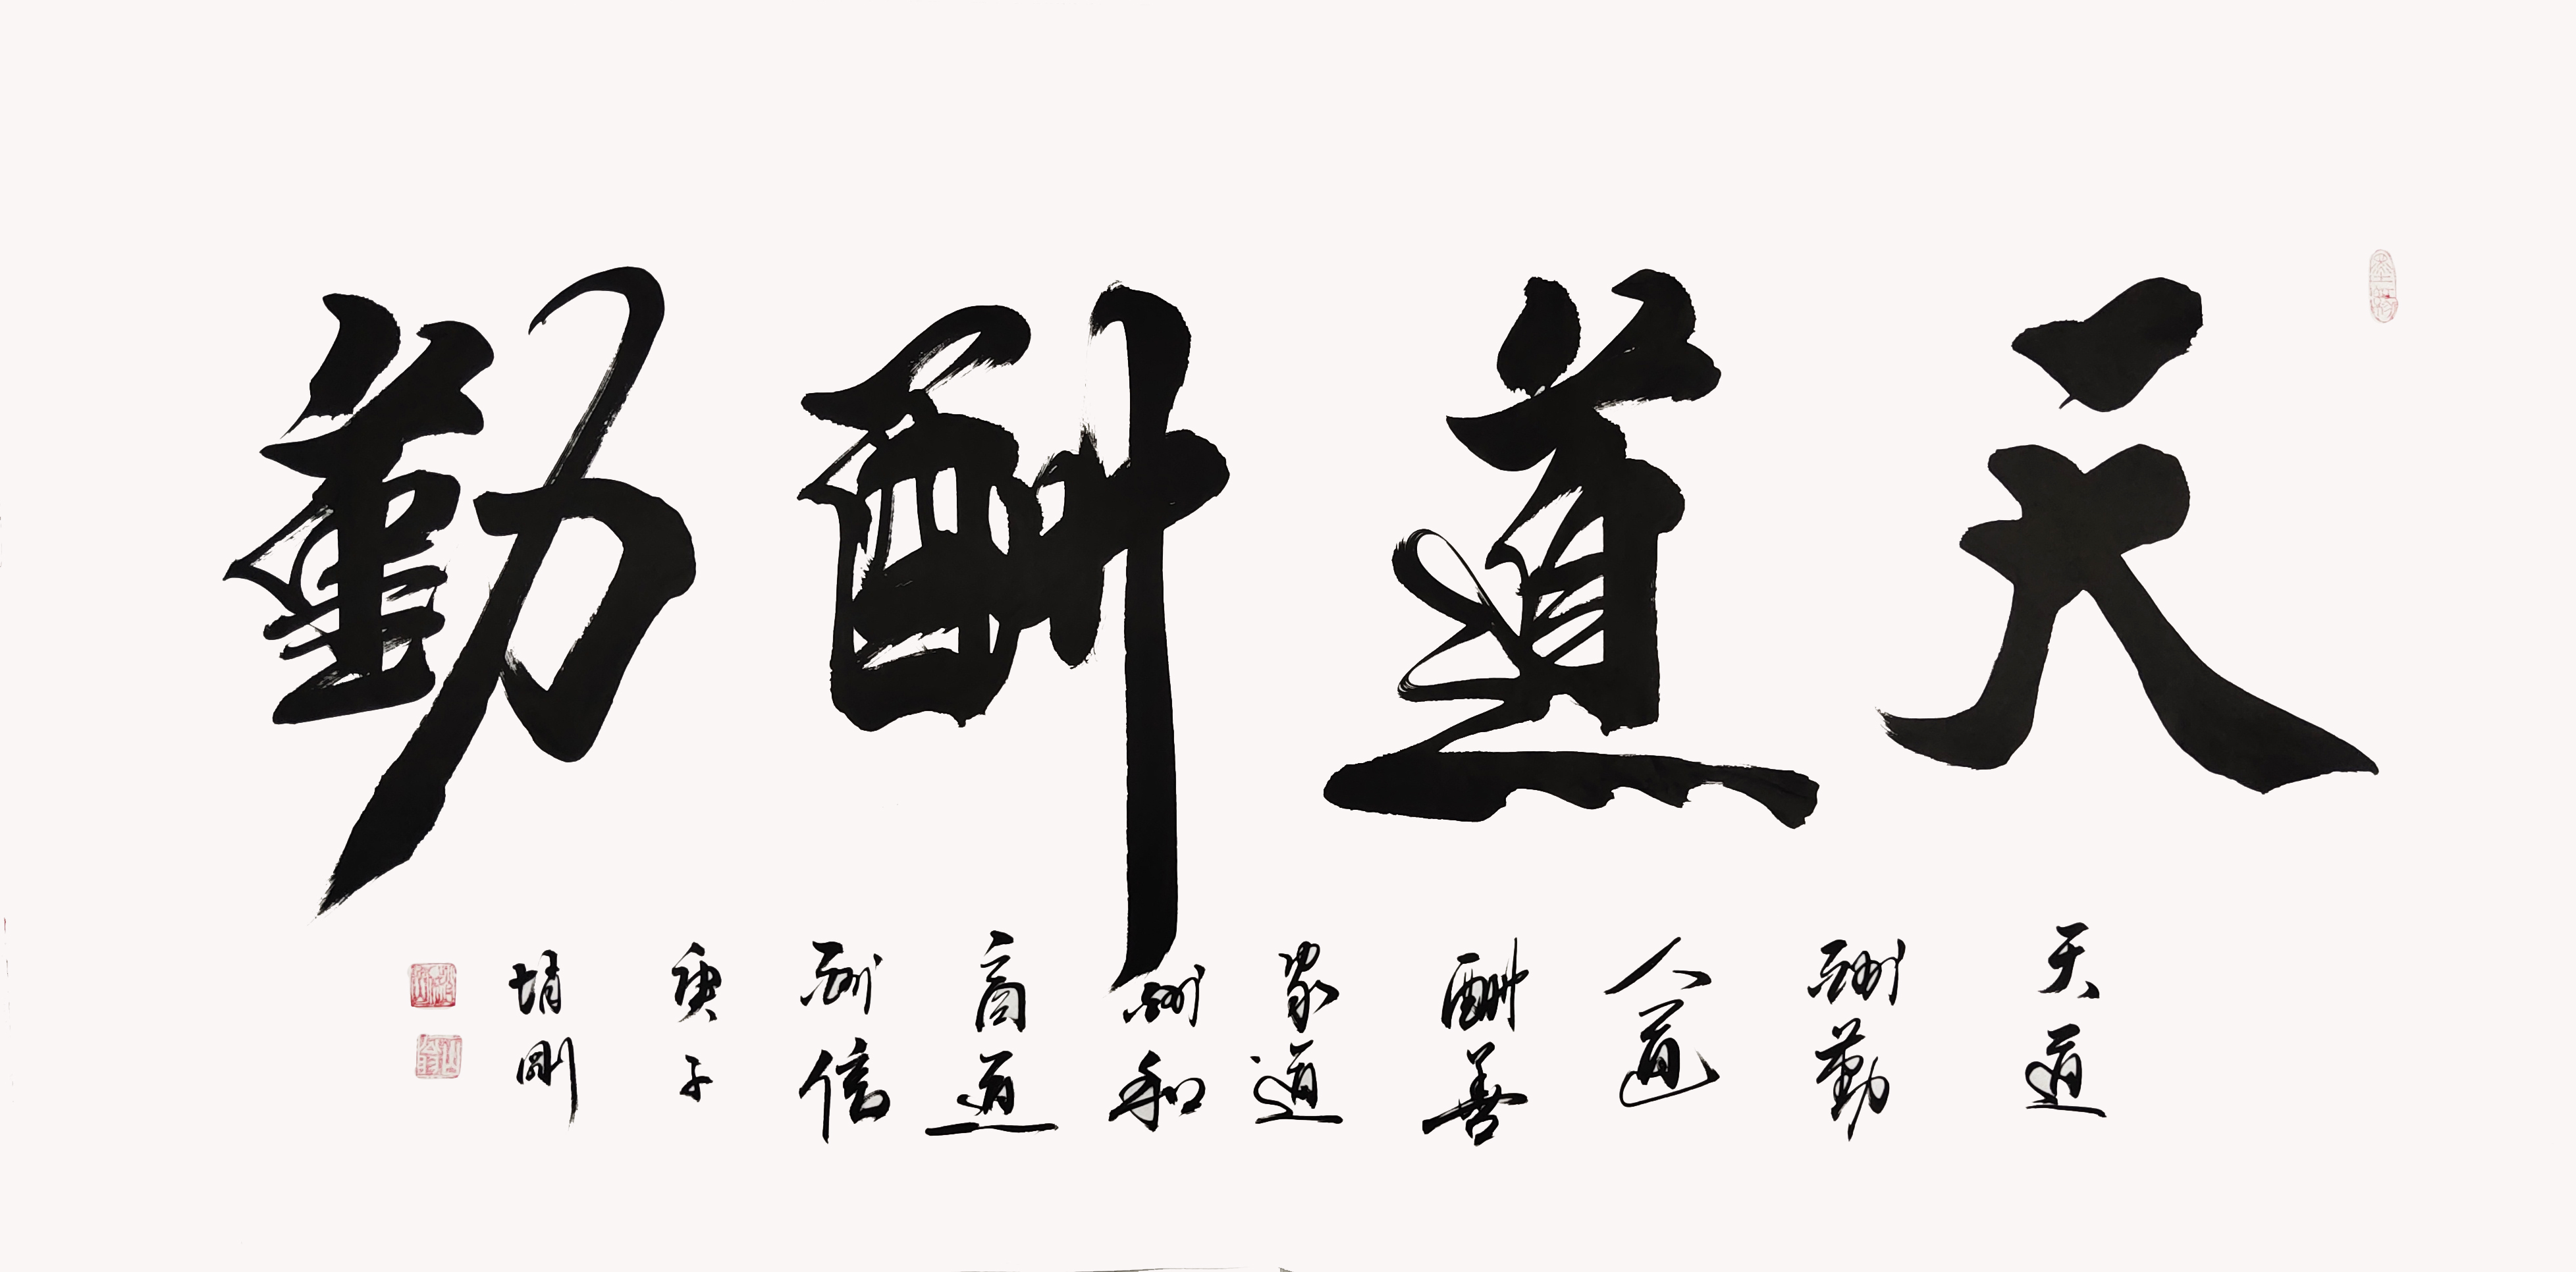 天道酬勤
天道
酬勤
人道
酬善
家道
酬和
商道
酬信
庚子
靖剛